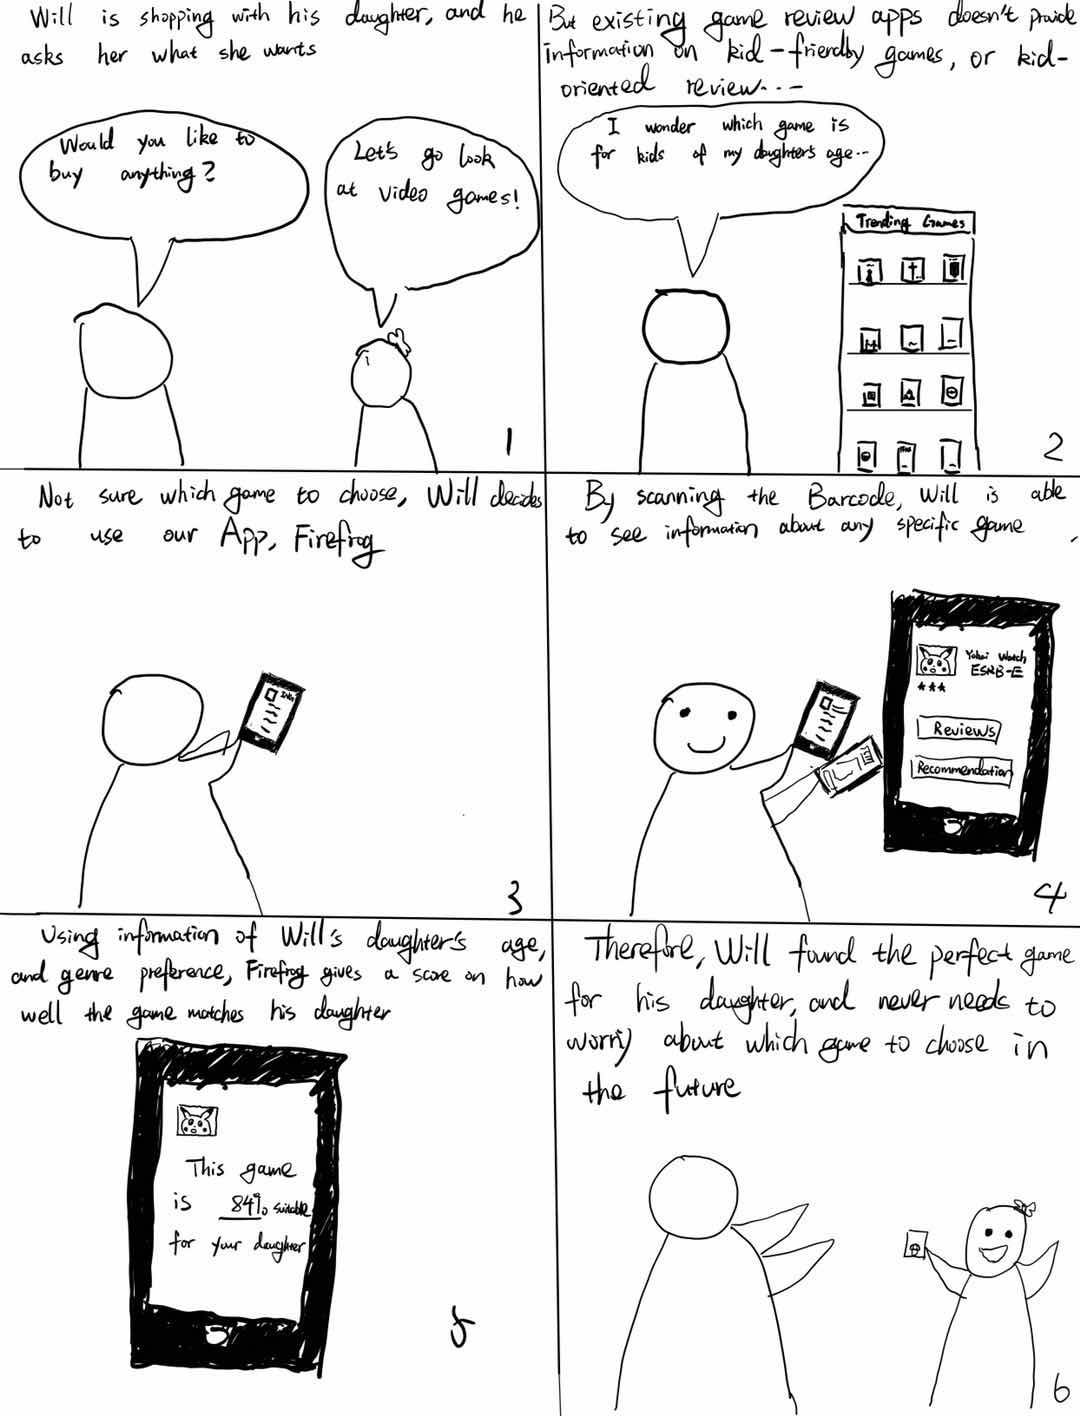 Will is shopping with his daughter, and he
asks her what she wants
Would you like to
buy anything?
Let's go look
at video games!
1
But existing game review apps doesn't provide
information on kid-friendly games, or kid-
oriented review....
I wonder which game is
for kids of my daughter's age...
Trending Games
2
Not sure which game to choose, Will decides
to use our App, Firefrog
3
By scanning the Barcode, Will is able
to see information about any specific game
Yokai Watch
ESRB-E
Reviews
Recommendation
4
Using information of Will's daughter's age,
and genre preference, Firefrog gives a score on how
well the game matches his daughter
This game
is 84% suitable
for your daughter
5
Therefore, Will found the perfect game
for his daughter, and never needs to
worry about which game to choose in
the future
6